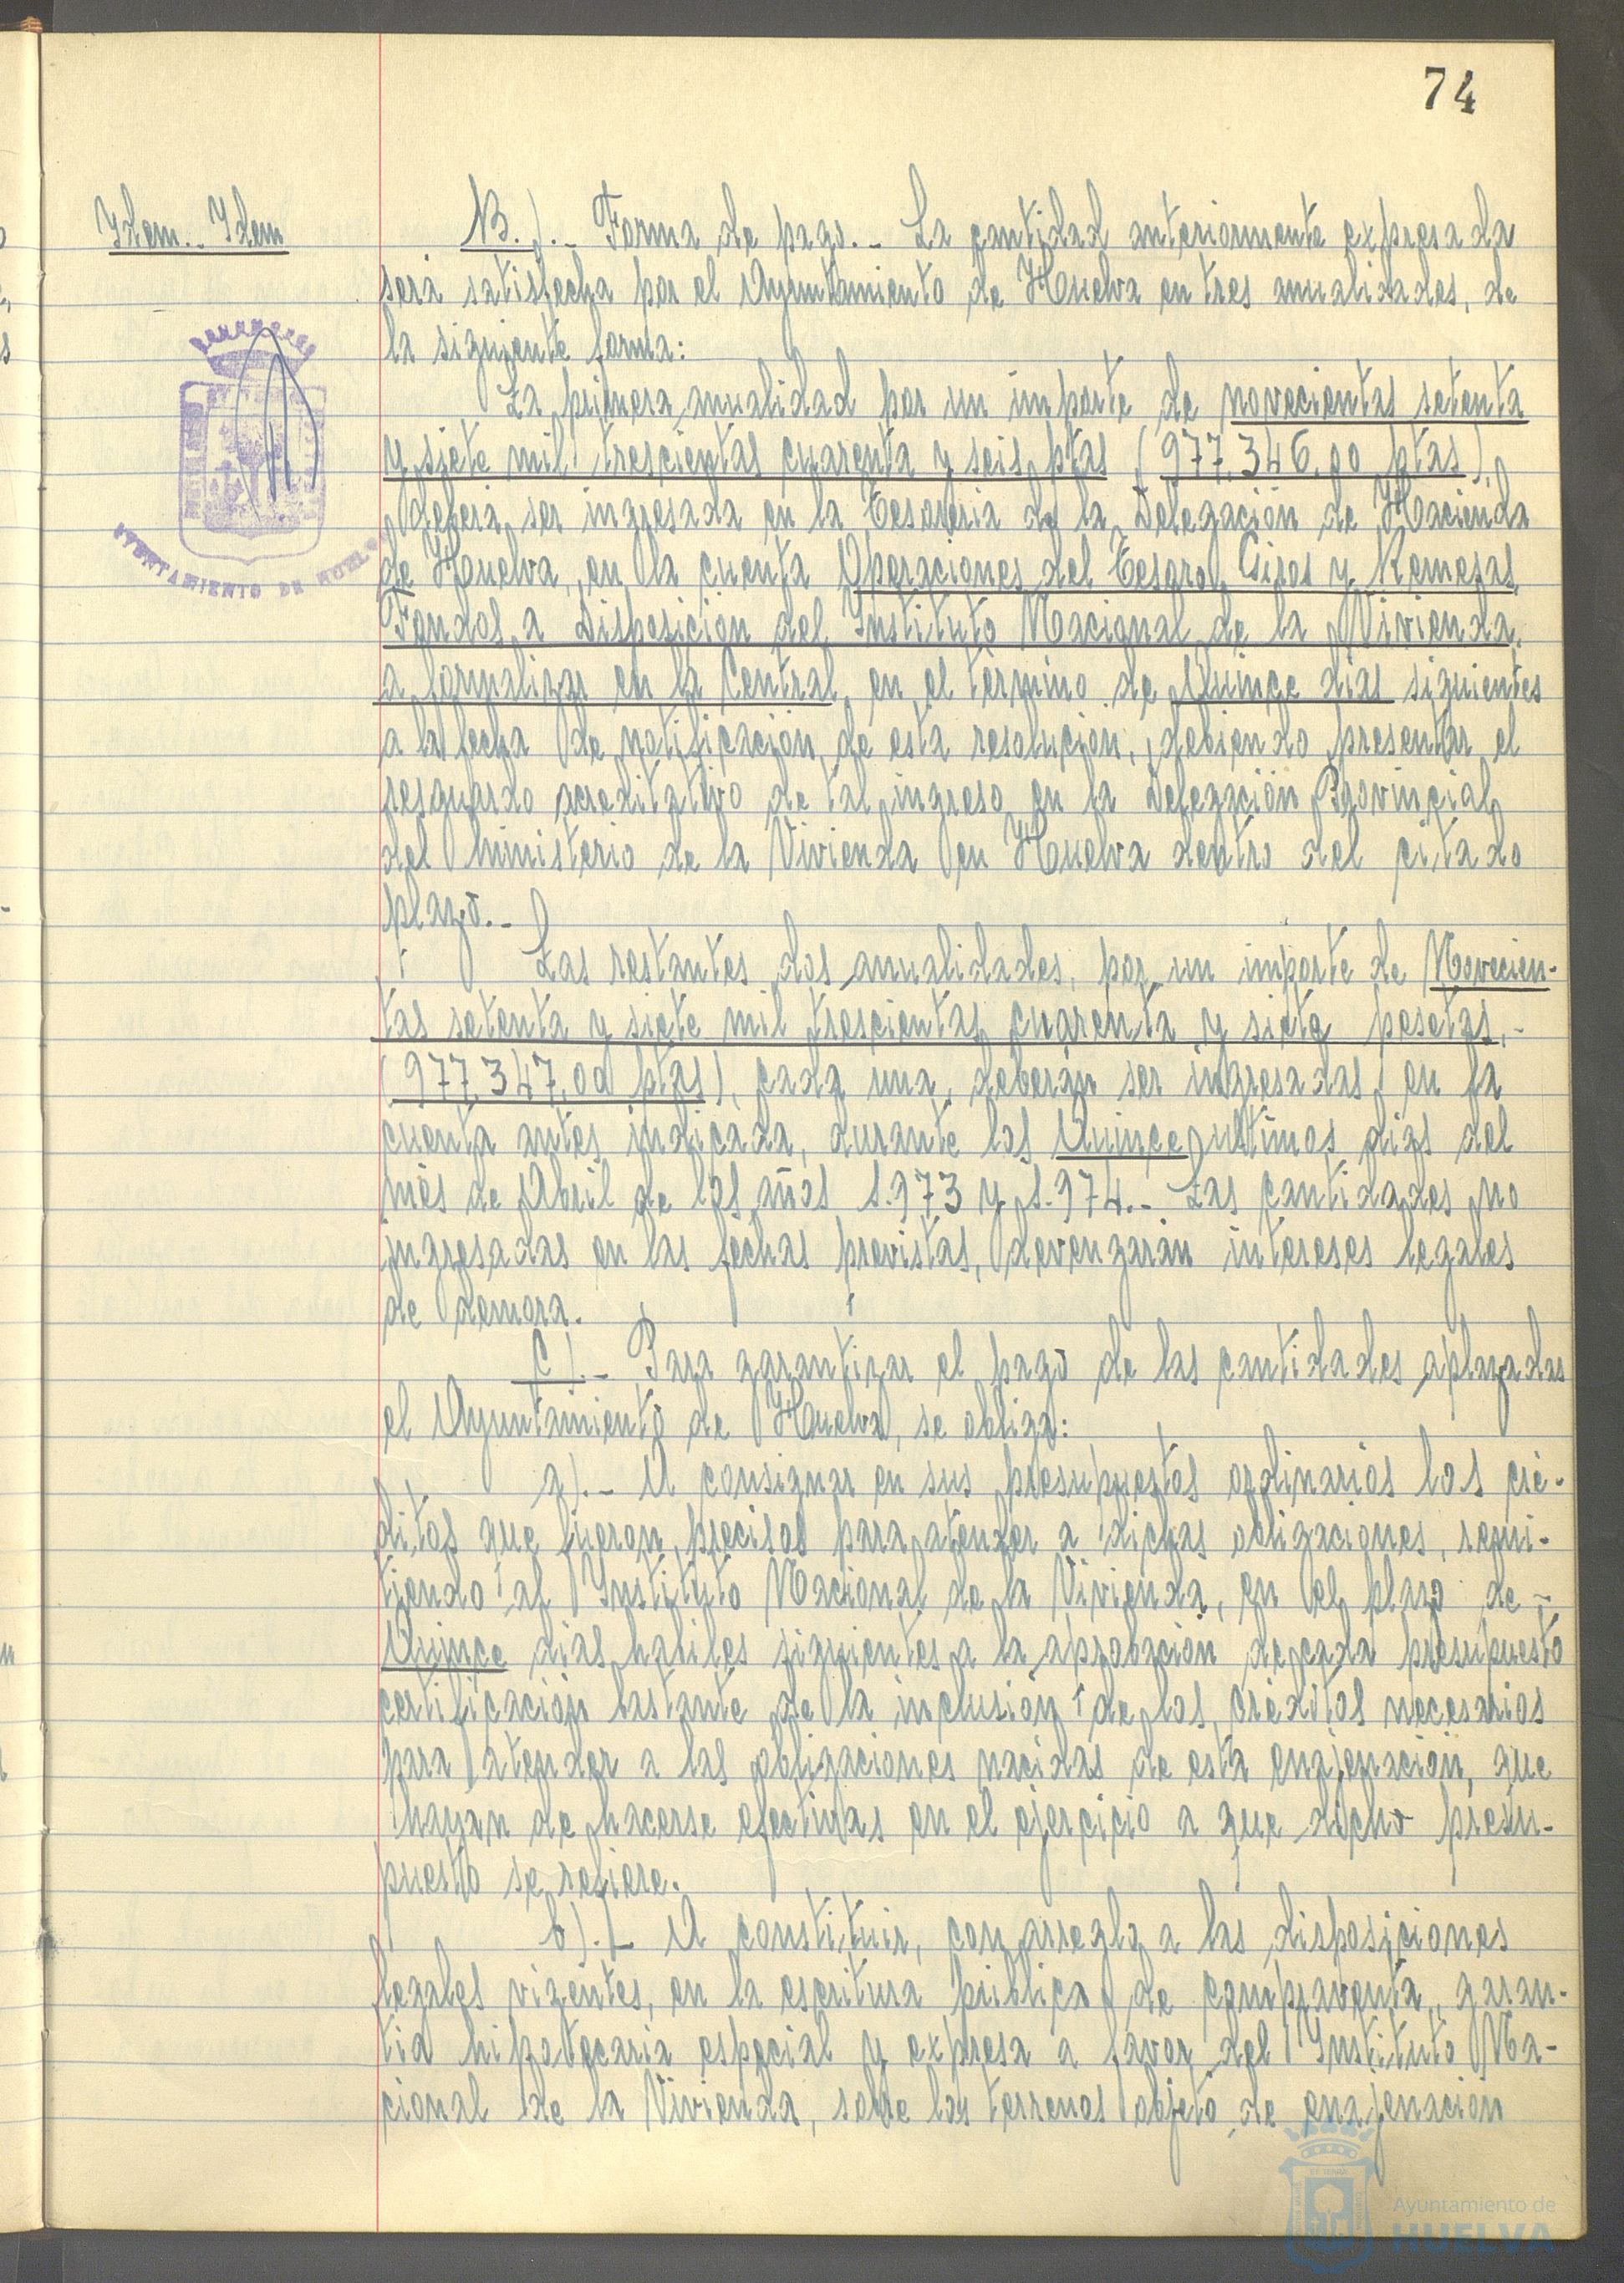 74
Idem.- Idem
B.).- Forma de pago.- La cantidad anteriormente expresada
será satisfecha por el Ayuntamiento de Huelva en tres anualidades, de
la siguiente forma:
La primera anualidad por un importe de novecientas setenta
y siete mil trescientas cuarenta y seis ptas (977.346,00 ptas),
deberá ser ingresada en la Tesorería de la Delegación de Hacienda
de Huelva, en la cuenta Operaciones del Tesoro, Giros y Remesas,
Fondos a Disposición del Instituto Nacional de la Vivienda,
a formalizar en la Central, en el término de Quince dias siguientes
a la fecha de notificación de esta resolución, debiendo presentar el
resguardo acreditativo de tal ingreso en la Delegación Provincial
del Ministerio de la Vivienda en Huelva dentro del citado
plazo.-
Las restantes dos anualidades, por un importe de Novecien-
tas setenta y siete mil trescientas cuarenta y siete pesetas,-
(977.347,00 ptas), cada una, deberán ser ingresadas en la
cuenta antes indicada, durante los Quince ultimos dias del
mes de Abril de los años 1.973 y 1.974.- Las cantidades no
ingresadas en las fechas previstas, devengarán intereses legales
de demora.
C).- Para garantizar el pago de las cantidades aplazadas
el Ayuntamiento de Huelva, se obliga:
a).- A consignar en sus presupuestos ordinarios los cré-
ditos que fueron precisos para atender a dichas obligaciones, remi-
tiendo al Instituto Nacional de la Vivienda, en el plazo de -
Quince dias habiles siguientes a la aprobación de cada presupuesto
certificación bastante de la inclusión de los créditos necesarios
para atender a las obligaciones nacidas de esta enajenación, que
hayan de hacerse efectivas en el ejercicio a que dicho presu-
puesto se refiere.
b).- A constituir, con arreglo a las disposiciones
legales vigentes, en la escritura pública de compraventa, garan-
tia hipotecaria especial y expresa a favor del Instituto Na-
cional de la Vivienda, sobre los terrenos objeto de enajenación
AYUNTAMIENTO DE HUELVA
Ayuntamiento de
HUELVA